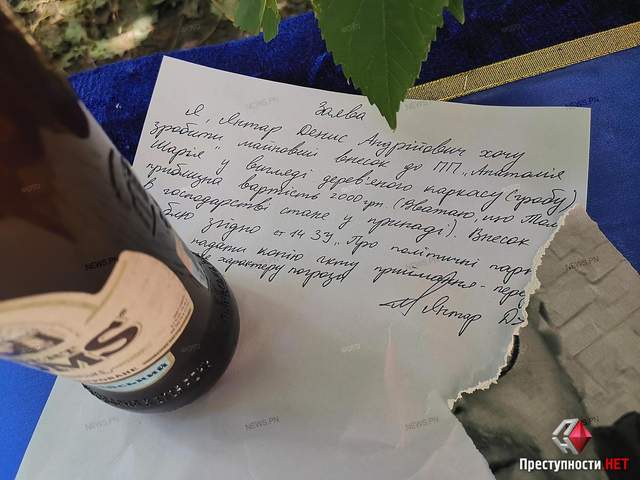 Заява
Я, Янтар Денис Андрійович хочу
зробити майновий внесок до ПП „Анатолія
Шарія" у вигляді дерев'яного каркасу (гробу)
приблизна вартість 2000 грн (Вважаю, що Там
В господарстві стане у принаді). Внесок
блю згідно ст 14 ЗУ „Про політичні пар
надати копію акту приймання - пере
характеру погрози
Янтар Д
MS
NEWS.PN
Преступности.НЕТ